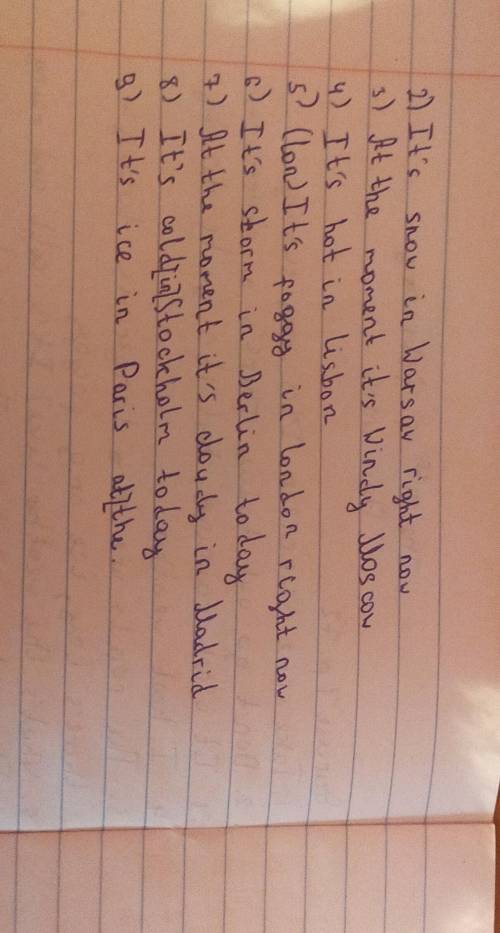 2) It's snow in Warsaw right now
3) At the moment it's Windy Moscow
4) It's hot in lisbon
5) (lon) It's foggy in london reaght now
6) It's storm in Berlin today
7) At the moment it's cloudy in Madrid
8) It's cold in Stockholm today
9) It's ice in Paris at the.